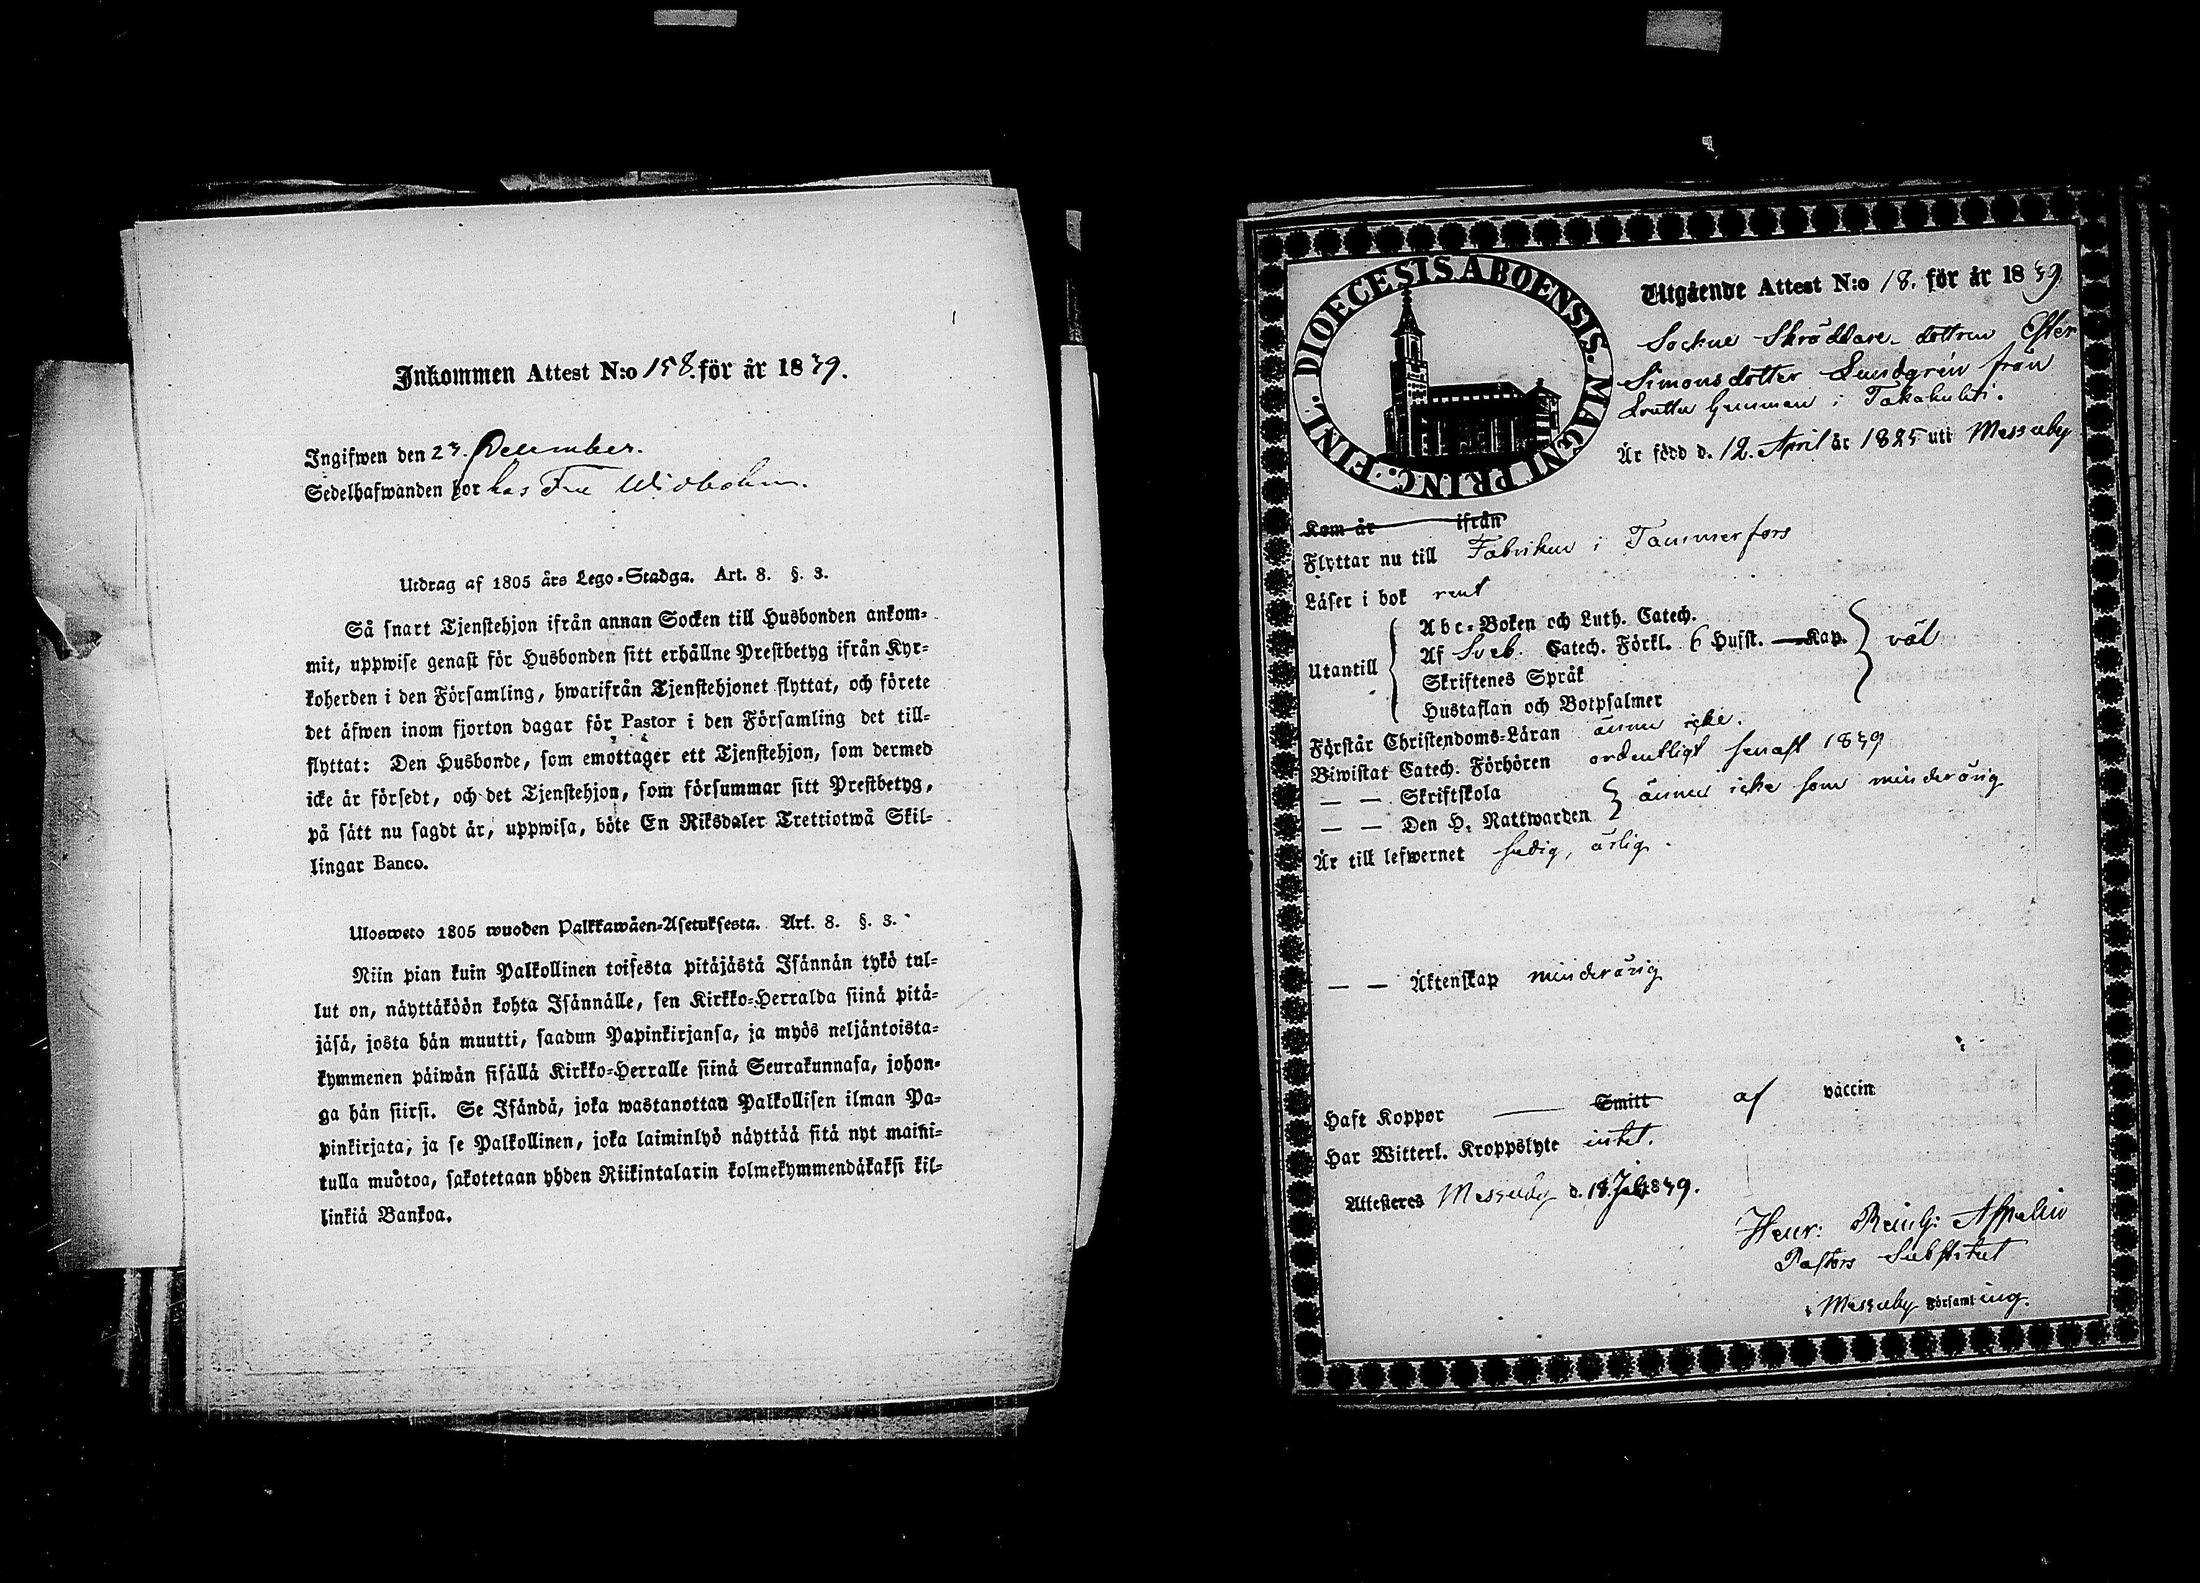 Inkommen Attest N:o 158. för år 1839.
Ingifwen den 23. December.
Sedelhafwanden bor hos Fru Widbohm.
Utdrag af 1805 års Lego-Stadga. Art. 8. §. 3.
Så snart Tjenstehjon ifrån annan Socken till Husbonden ankom-
mit, uppwise genast för Husbonden sitt erhållne Prestbetyg ifrån Kyr-
koherden i den Församling, hwarifrån Tjenstehjonet flyttat, och förete
det äfwen inom fjorton dagar för Pastor i den Församling det till-
flyttat: Den Husbonde, som emottager ett Tjenstehjon, som dermed
icke är försedt, och det Tjenstehjon, som försummar sitt Prestbetyg,
på sätt nu sagdt är, uppwisa, böte En Riksdaler Trettiotwå Skil-
lingar Banco.
Ulosweto 1805 wuoden Palkkawäen-Asetuksesta. Art. 8. §. 3.
Niin pian kuin Palkollinen toisesta pitäjästä Isännän tykö tul-
lut on, näyttäköön kohta Isännälle, sen Kirkko-Herralda siinä pitä-
jäsä, josta hän muutti, saadun Papinkirjansa, ja myös neljäntoista-
kymmenen päiwän sisällä Kirkko-Herralle siinä Seurakunnasa, johon-
ga hän siirsi. Se Isändä, joka wastanottaa Palkollisen ilman Pa-
pinkirjata, ja se Palkollinen, joka laiminlyö näyttää sitä nyt maini-
tulla muotoa, sakotetaan yhden Riikintalarin kolmekymmendäkaksi kil-
linkiä Bankoa.
DIOECESIS ABOENSIS. MAGNI PRINC. FINL.
Utgående Attest N:o 18. för år 1839
Sockne Skräddare dottren Ester
Simonsdotter Lundgrén från
Gunman i Takahuhti.
Är född d. 12. April år 1825 uti Messuby
Kom år ifrån
Flyttar nu till Fabriken i Tammerfors
Läser i bok rent
Utantill
Abc-Boken och Luth. Catech.
Af Sveb. Catech. Förkl. 6 Hufst. — Kap. väl
Skriftenes Språk
Hustaflan och Botpsalmer
Förstår Christendoms-Läran ännu icke.
Biwistat Catech. Förhören ordentligt senast 1839
— — Skriftskola
— — Den H. Nattwarden ännu icke som minderårig
Är till lefwernet sedig, ärlig.
— — Äktenskap minderårig
Haft Koppor — Smitt af vaccin
Har Witterl. Kroppslyte intet.
Attesteras Messuby d. 18 1839.
Henr: Reinh: Aspelin
Pastors Substitut
i Messuby Församling.